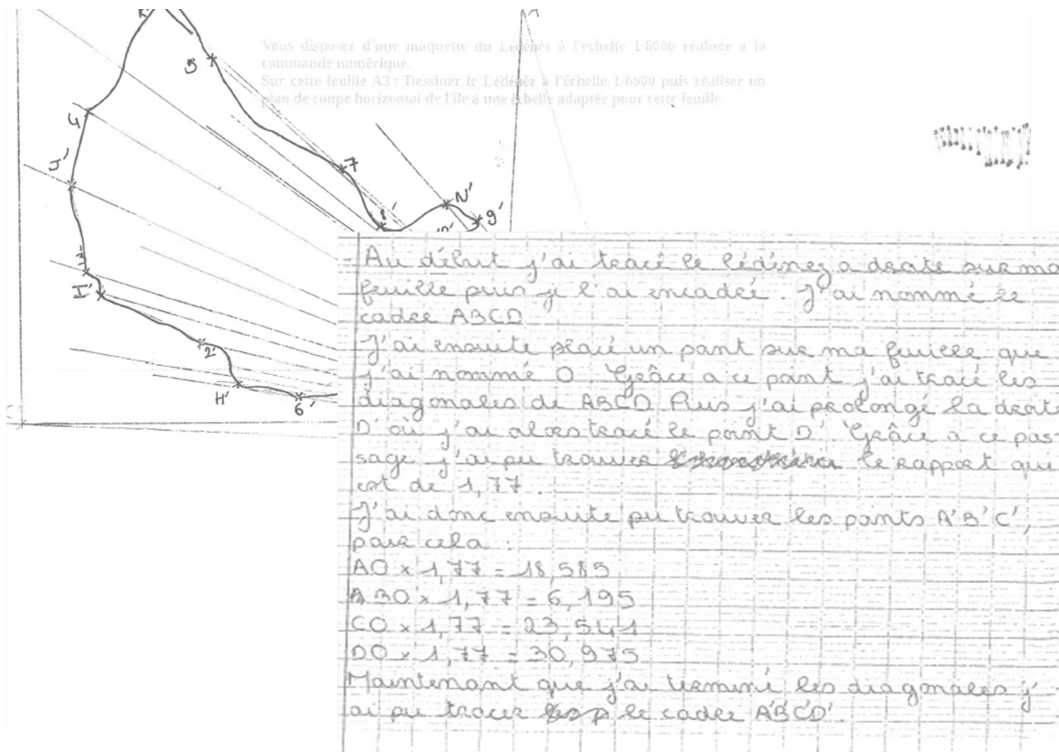 Vous disposez d'une maquette du Lédénès à l'échelle 1/6000 réalisée à la
commande numérique.
Sur cette feuille A3 : Dessiner le Lédénèz à l'échelle 1/6000 puis réaliser un
plan de coupe horizontal de l'île à une échelle adaptée pour cette feuille
5
4
J'
3'
I'
2'
H'
6'
7
N'
9'
C
- Au début j'ai tracé le lédénez a droite sur ma
feuille puis je l'ai encadré. J'ai nommé ce
cadre ABCD
J'ai ensuite placé un point sur ma feuille que
j'ai nommé O. Grâce a ce point j'ai tracé les
diagonales de ABCD. Puis j'ai prolongé la droite
D où j'ai alors tracé le point D'. Grâce a ce pas
sage j'ai pu trouver le rapport qui
est de 1,77.
J'ai donc ensuite pu trouver les points A'B'C',
pour cela :
AO × 1,77 = 18,585
BO × 1,77 = 6,195
CO × 1,77 = 23,541
DO × 1,77 = 30,975
Maintenant que j'ai terminé les diagonales j'
ai pu tracer le cadre A'B'C'D'.